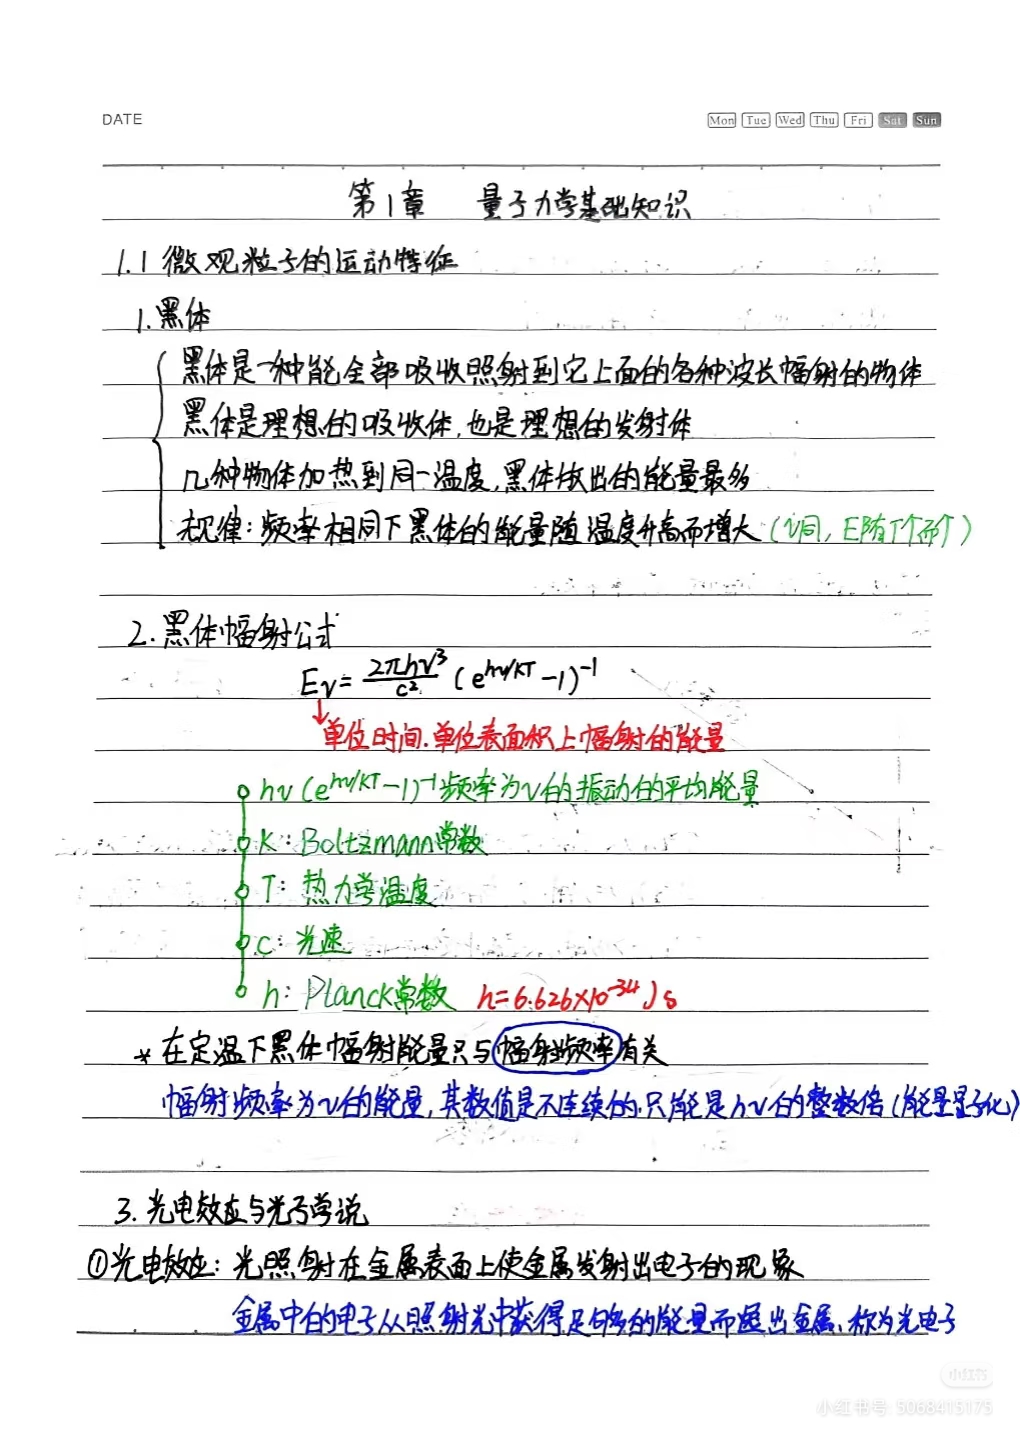 DATE
Mon Tue Wed Thu Fri Sat Sun
第1章 量子力学基础知识
1.1 微观粒子的运动特征
1.黑体
黑体是一种能全部吸收照射到它上面的各种波长辐射的物体
黑体是理想的吸收体,也是理想的发射体
几种物体加热到同一温度,黑体放出的能量最多
规律:频率相同下黑体的能量随温度升高而增大(ν同,E随T个而个)
2.黑体辐射公式
Eν=2πhν³/c² (e^hν/KT -1)^-1
↓单位时间.单位表面积上辐射的能量
hν(e^hν/KT -1)^-1 频率为ν的振动的平均能量
K:Boltzmann常数
T:热力学温度
C:光速
h:Planck常数 h=6.626×10^-34 J s
*在定温下黑体辐射能量只与辐射频率有关
辐射频率为ν的能量,其数值是不连续的.只能是hν的整数倍(能量量子化)
3.光电效应与光子学说
①光电效应:光照射在金属表面上使金属发射出电子的现象
金属中的电子从照射光中获得足够的能量而逸出金属,称为光电子
小红书
小红书号: 5068415175